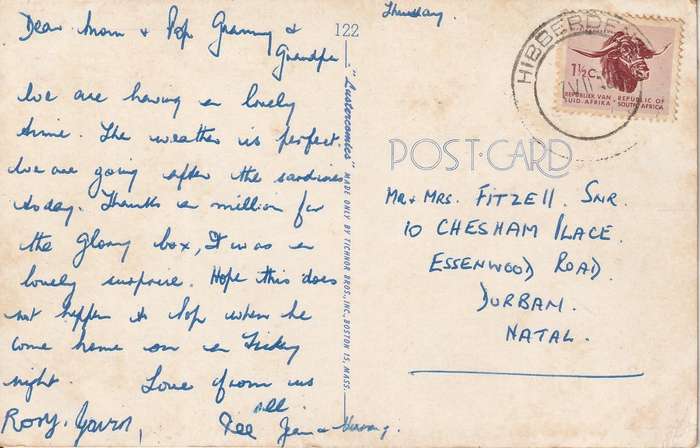 Dear Mom & Pop Granny &
Grandpa
We are having a lovely
time. The weather is perfect.
We are going after the sardines
today. Thanks a million for
the glory box, It was a
lovely surprise. Hope this does
not happen to Pop when he
come home on a Friday
night. Love from us
all
Rory. Jean &
122
"Lustercomics" MADE ONLY BY TICHNOR BROS., INC., BOSTON 15, MASS.
Thursday
HIBBERDENE
1½c
REPUBLIEK VAN SUID-AFRIKA
REPUBLIC OF SOUTH AFRICA
POST-CARD
MR & MRS. FITZELL. SNR.
10 CHESHAM PLACE.
ESSENWOOD ROAD.
DURBAN.
NATAL.